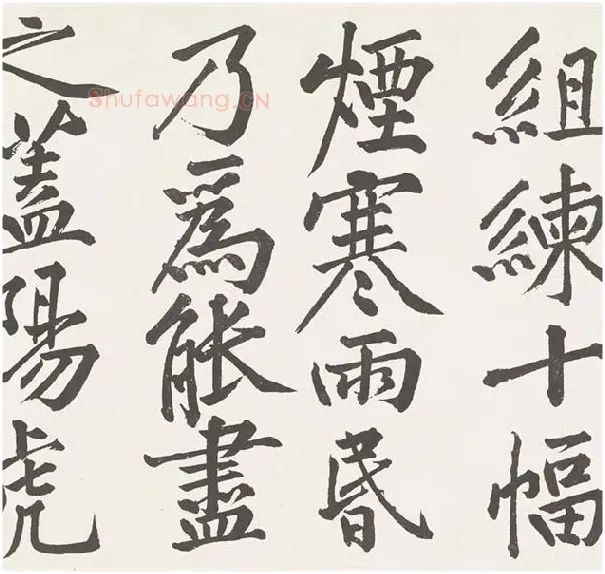 組練十幅
煙寒雨昬
乃爲能盡
之蓋陽虎
Shufawang.CN